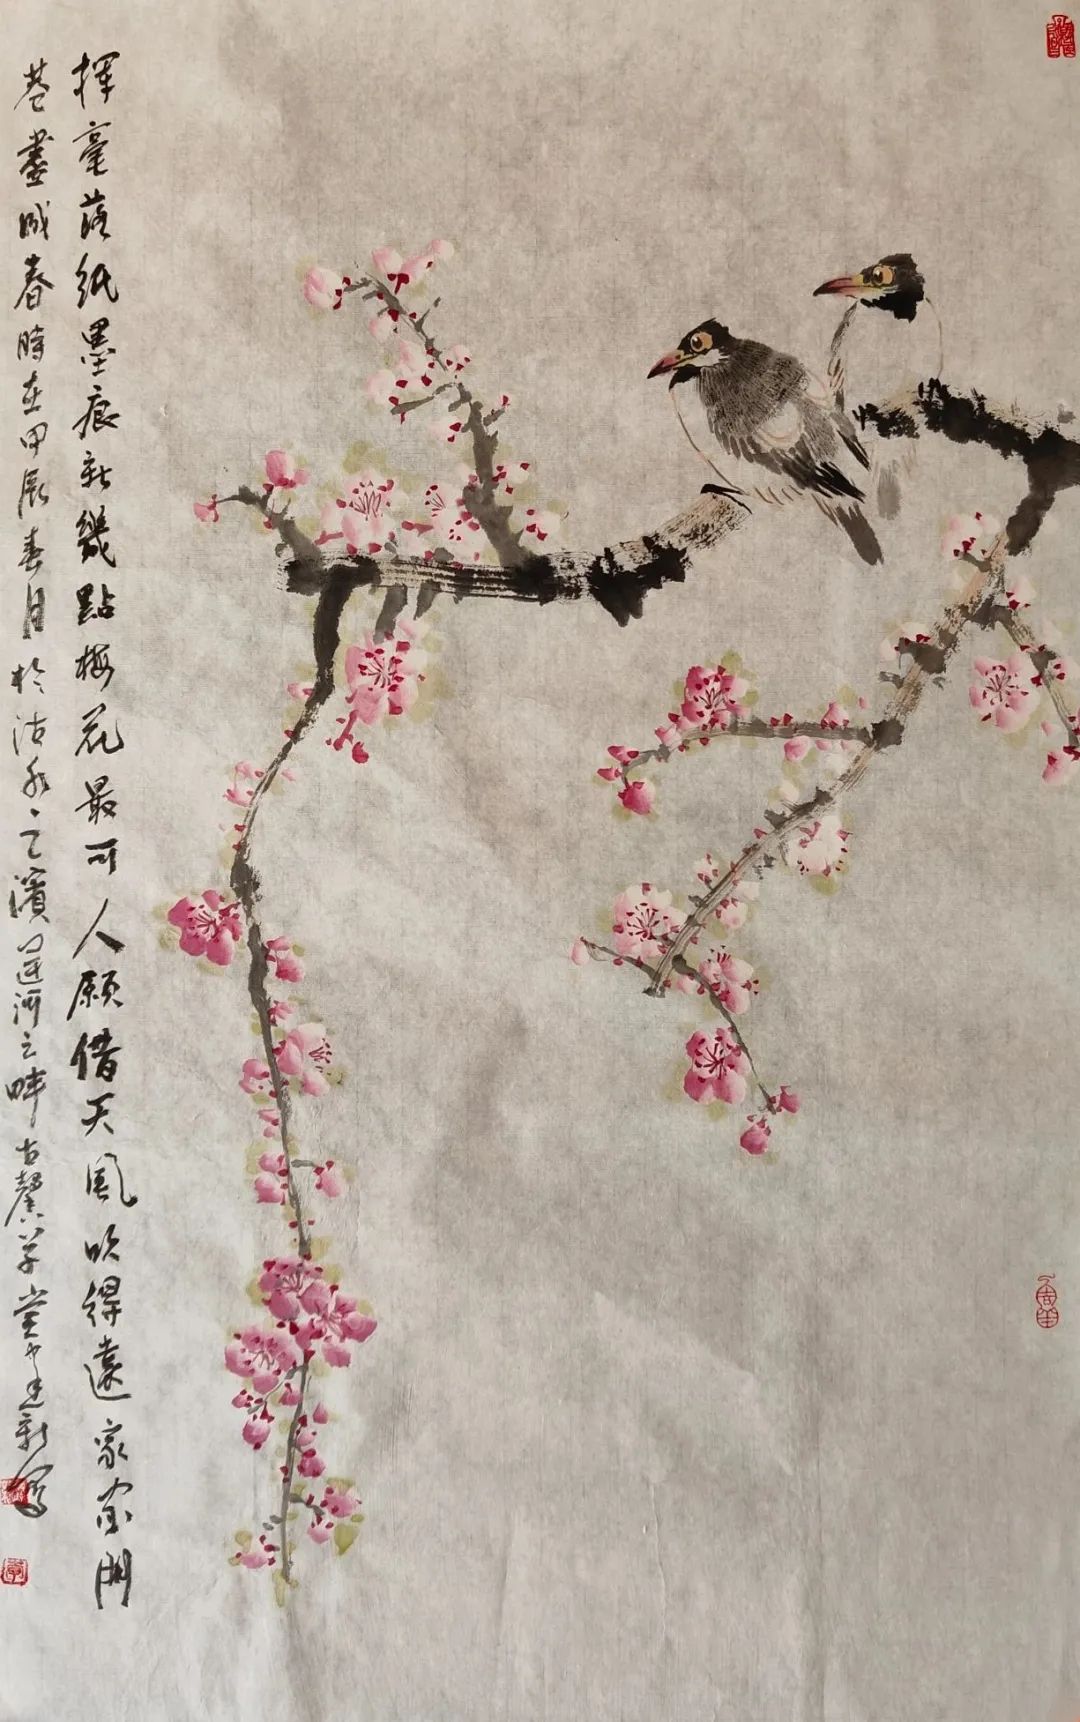 揮毫落紙墨痕新幾點梅花最可人願借天風吹得遠家家門
巷盡成春時在甲辰春月於沽水之濱運河之畔古馨草堂建新寫